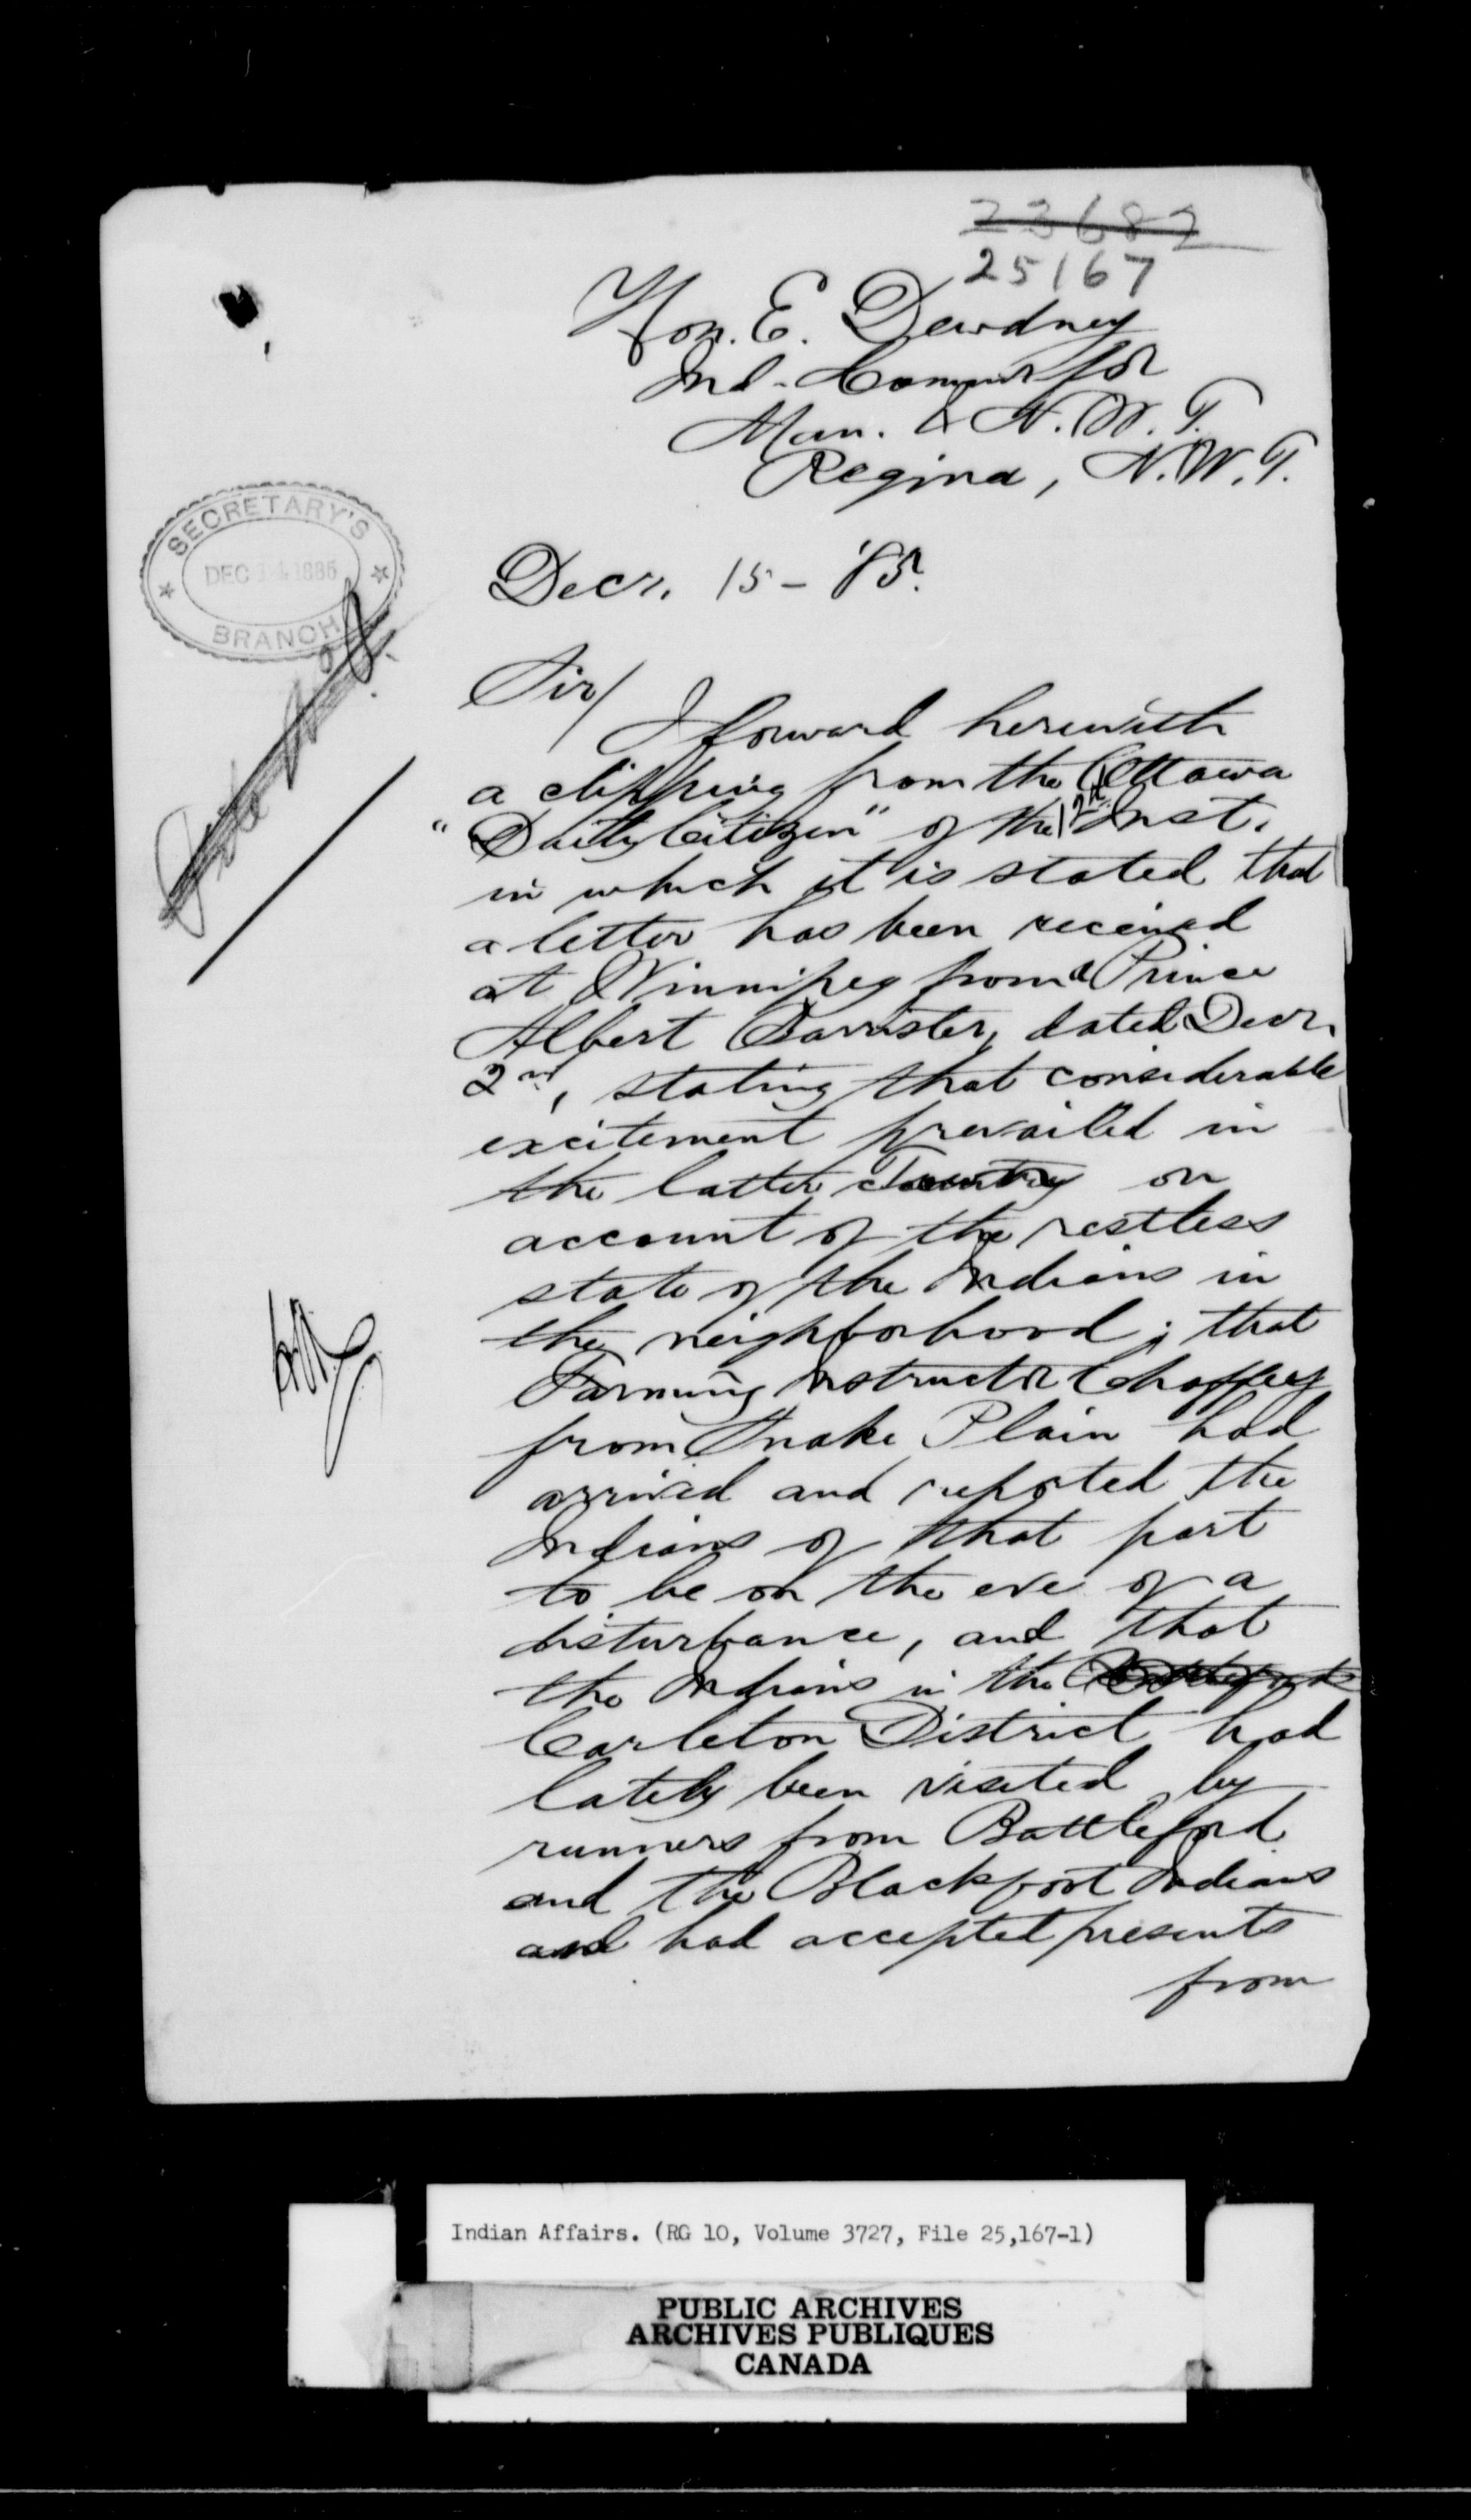 23687
25167
Hon. E. Dewdney
Ind. Commr for
Man. & N.W.T.
Regina, N.W.T.
SECRETARY'S
DEC 14 1885
BRANCH
Decr. 15 - '85.
Sir/
I forward herewith
a clipping from the Ottawa
"Daily Citizen" of the Inst.
in which it is stated that
a letter has been received
at Winnipeg from a Prince
Albert Barrister, dated Decr.
2nd, stating that considerable
excitement prevailed in
the latter on
account of the restless
state of the Indians in
the neighborhood; that
Farming Instructor Chaffey
from Snake Plain had
arrived and reported the
Indians of that part
to be on the eve of a
disturbance, and that
the Indians in the
Carleton District had
lately been visited by
runners from Battleford
and the Blackfoot Indians
and had accepted presents
from
Indian Affairs. (RG 10, Volume 3727, File 25,167-1)
PUBLIC ARCHIVES
ARCHIVES PUBLIQUES
CANADA